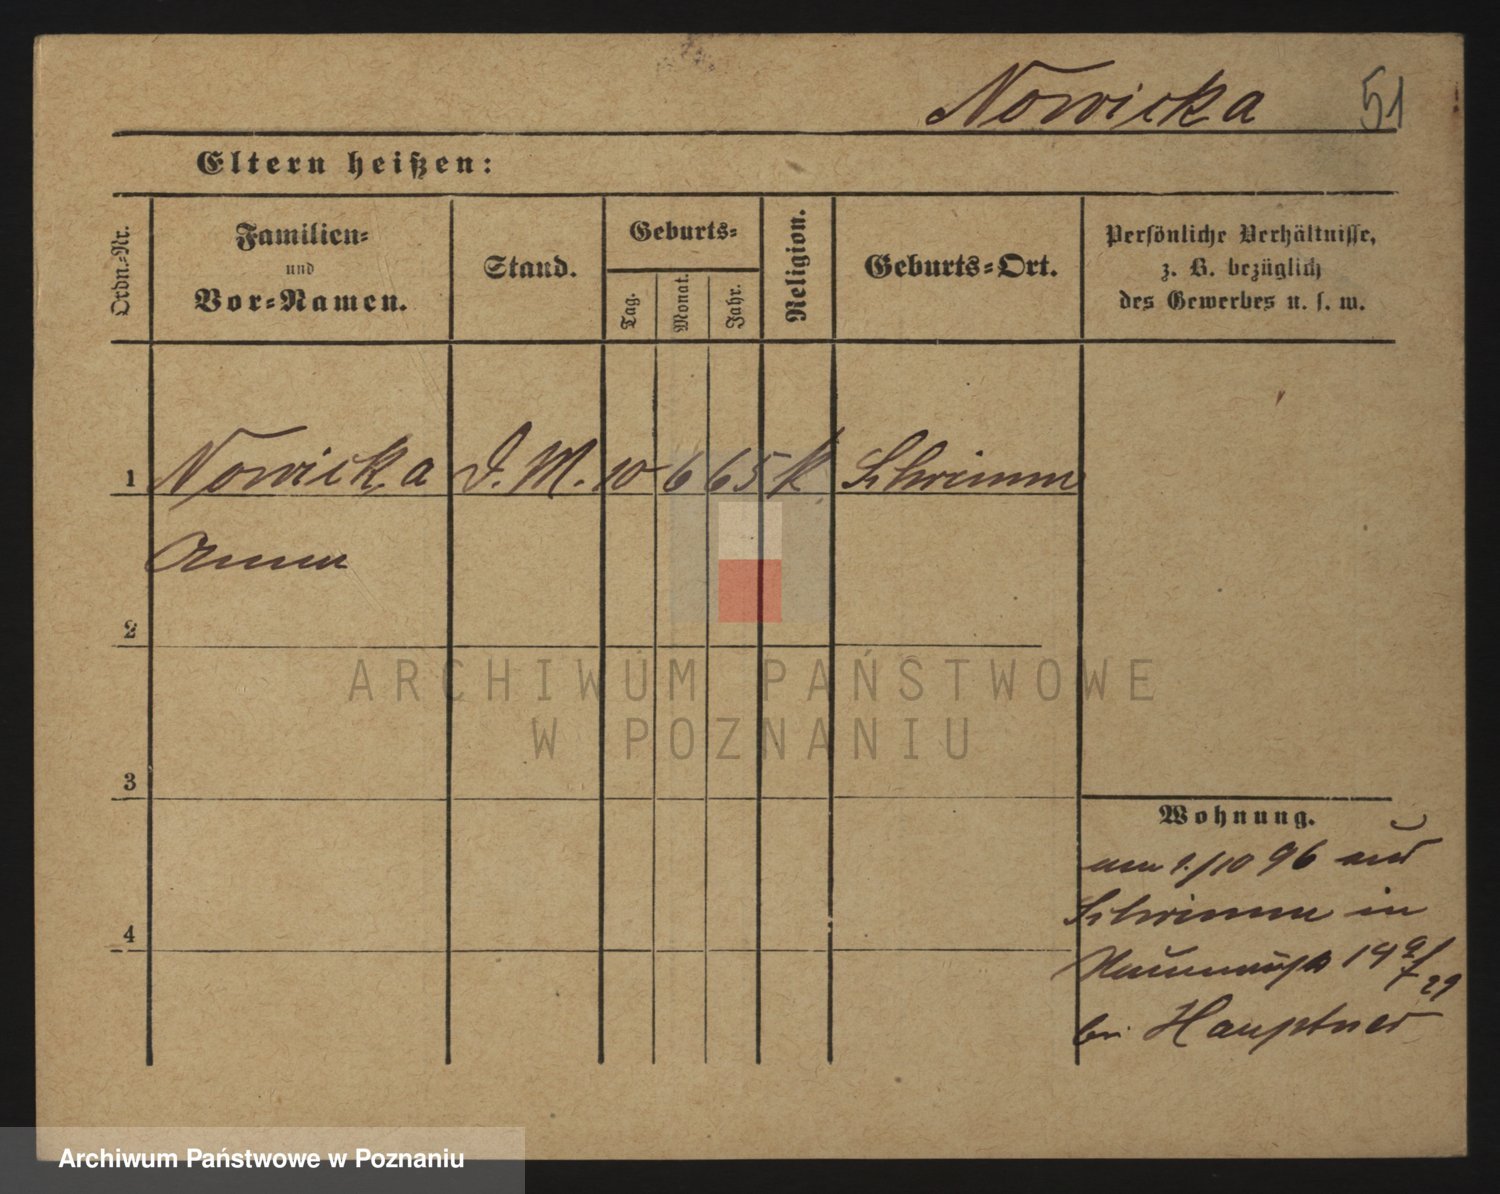 Nowicka 51
Eltern heißen:
Ordn.-Nr.
Familien-
und
Vor-Namen.
Stand.
Geburts-
Tag.
Monat.
Jahr.
Religion.
Geburts-Ort.
Persönliche Verhältnisse,
z. B. bezüglich
des Gewerbes u. s. w.
1 Nowicka D. M. 10 6 65 k Schrimm
Anna
2
ARCHIWUM PAŃSTWOWE
W POZNANIU
3
Wohnung.
am 1./10 96 aus
Schrimm in
4
bei Hauptner
Archiwum Państwowe w Poznaniu